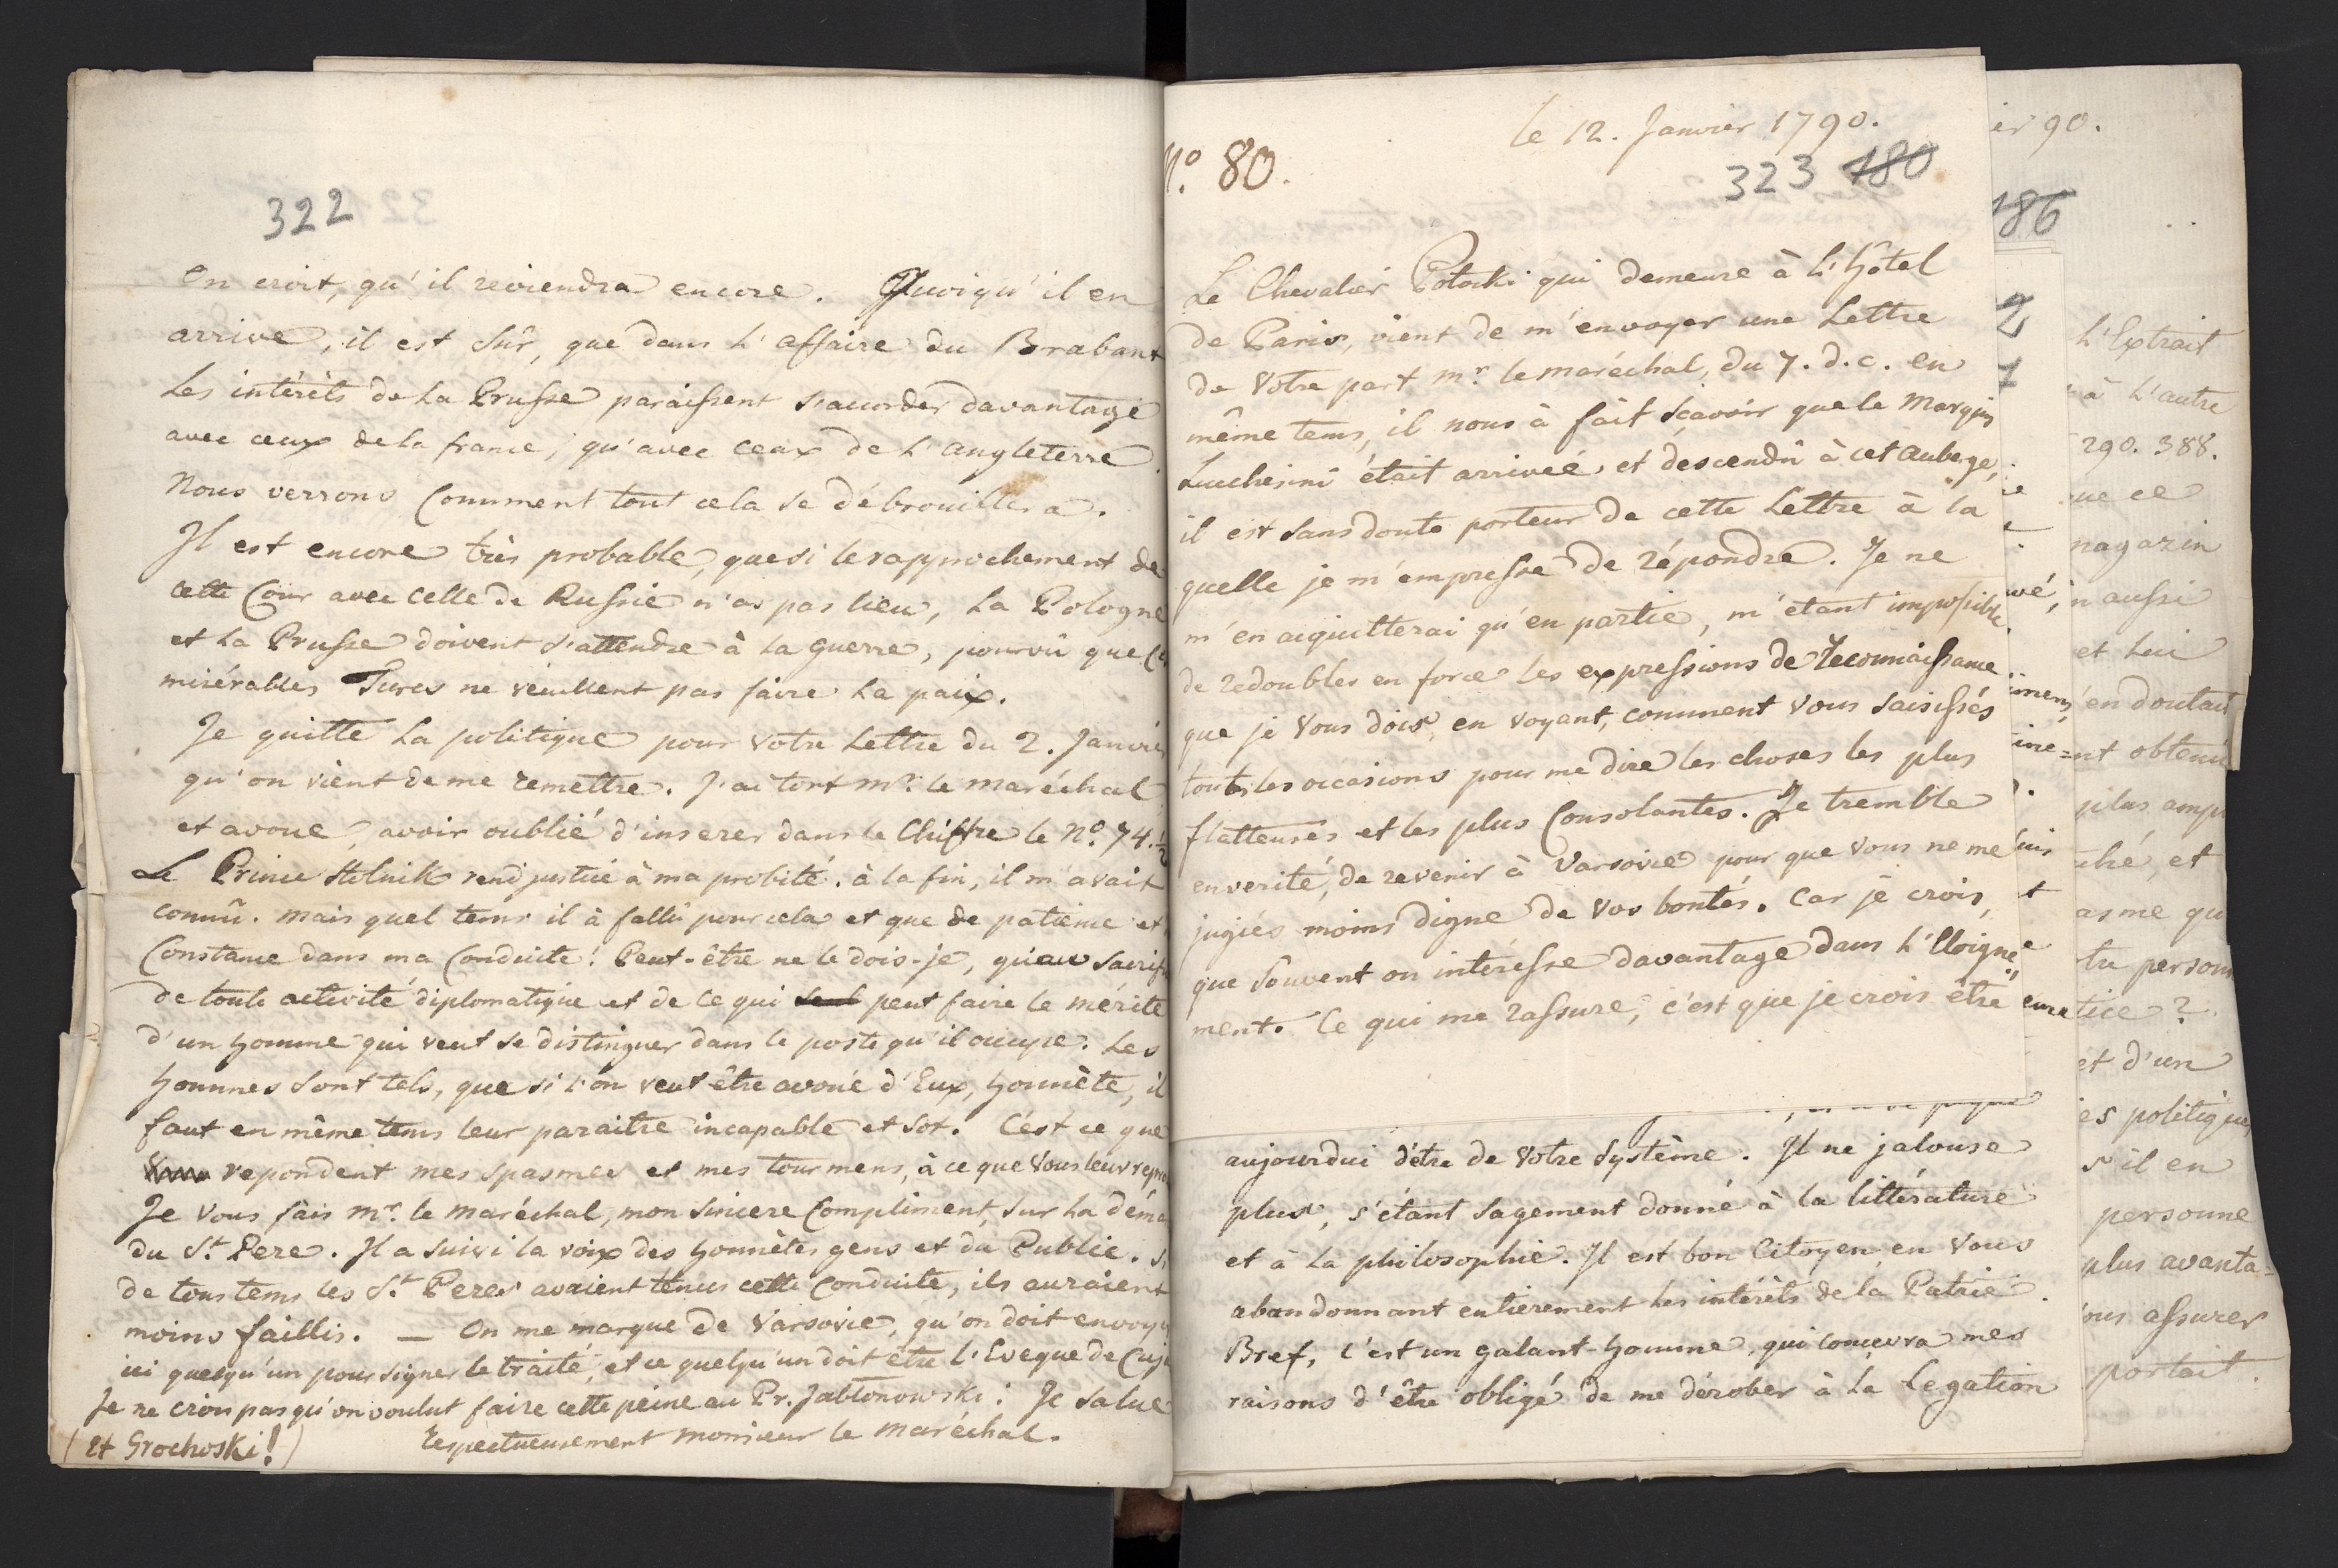 322
on croit, qu'il reviendra encore. Quoiqu'il en
arrive, il est sûr, que dans l'affaire du Brabant
les intérêts de la Prusse paraissent s'accorder davantage
avec ceux de la france, qu'avec ceux de l'angleterre.
Nous verrons Comment tout cela se débrouillera.
Il est encore très probable, que si le rapprochement de
cette Cour avec celle de Russie n'as pas lieu, la Pologne
et la Prusse doivent s'attendre à la guerre, pourvû que
misérables Turcs ne veuillent pas faire la paix.
Je quitte la politique pour votre Lettre du 2. Janvier
qu'on vient de me remettre. J'ai tort mr. le maréchal
et avoue, avoir oublié d'inserer dans le Chiffre le No. 74. ½
Le Prince Stolnik rend justice à ma probité. à la fin, il m'avait
connû. mais quel tems il à fallû pour cela et que de patience et
Constance dans ma Conduite! Peut-être ne le dois-je, qu'au
de toute activité diplomatique et de ce qui seul peut faire le mérite
d'un homme qui veut se distinguer dans le poste qu'il occupe. Les
hommes sont tels, que si l'on veut être avoué d'Eux, honnête, il
faut en même tems leur paraitre incapable et sot. C'est ce que
repondent mes spasmes et mes tourmens, à ce que Vous leur
Je Vous fais mr. le maréchal, mon sincere Compliment, sur la
du St. Pere. Il a suivi la voix des honnêtes gens et du Public.
de tous tems les St. Peres avaient tenus cette Conduite, ils auraient
moins faillis. — On me marque de Varsovie, qu'on doit
ici quelqu'un pour signer le traité, et ce quelqu'un doit être l'Eveque de
Je ne crois pas qu'on voulut faire cette peine au Pr. Jabłonowski: Je salue
(et Grochoski!) respectueusement monsieur le maréchal.
le 12. Janvier 1790.
No. 80.
323 180
Le Chevalier Potocki qui demeure à l'hôtel
de Paris, vient de m'envoyer une Lettre
de Votre part mr. le maréchal, du 7. d. c. en
même tems, il nous à fait sçavoir que le Marquis
Lucchesini était arriveé et descendû à cet Auberge,
il est sans doute porteur de cette Lettre à la
quelle je m'empresse de répondre. Je ne
m'en acquitterai qu'en partie, m'étant impossible
de redoubler en force les expressions de reconnaissance
que je Vous dois, en voyant, comment Vous saisissés
toutes les occasions pour me dire les choses les plus
flatteuses et les plus Consolantes. Je tremble
en verité, de revenir à Varsovie pour que Vous ne me
jugiés moins digne de Vos bontés. Car je crois,
que souvent on intéresse davantage dans l'Eloigne
ment. Ce qui me rassure, c'est que je crois être
aujourdui d'être de Votre Système. Il ne jalouse
plus, s'étant sagement donné à la littérature
et à la philosophie. Il est bon Citoyen en Vous
abandonnant entierement les intérêts de la Patrie.
Bref, c'est un galant-homme, qui concevra mes
raisons d'être obligé de me dérober à la Legation
er 90.
186
L'Extrait
à l'autre
290. 388.
ce
magazin
aussi
et Lui
en doutait
obtenu
plus
et
qu
tice?
et d'un
es politiques
s'il en
personne
plus avanta-
assurer
portait.